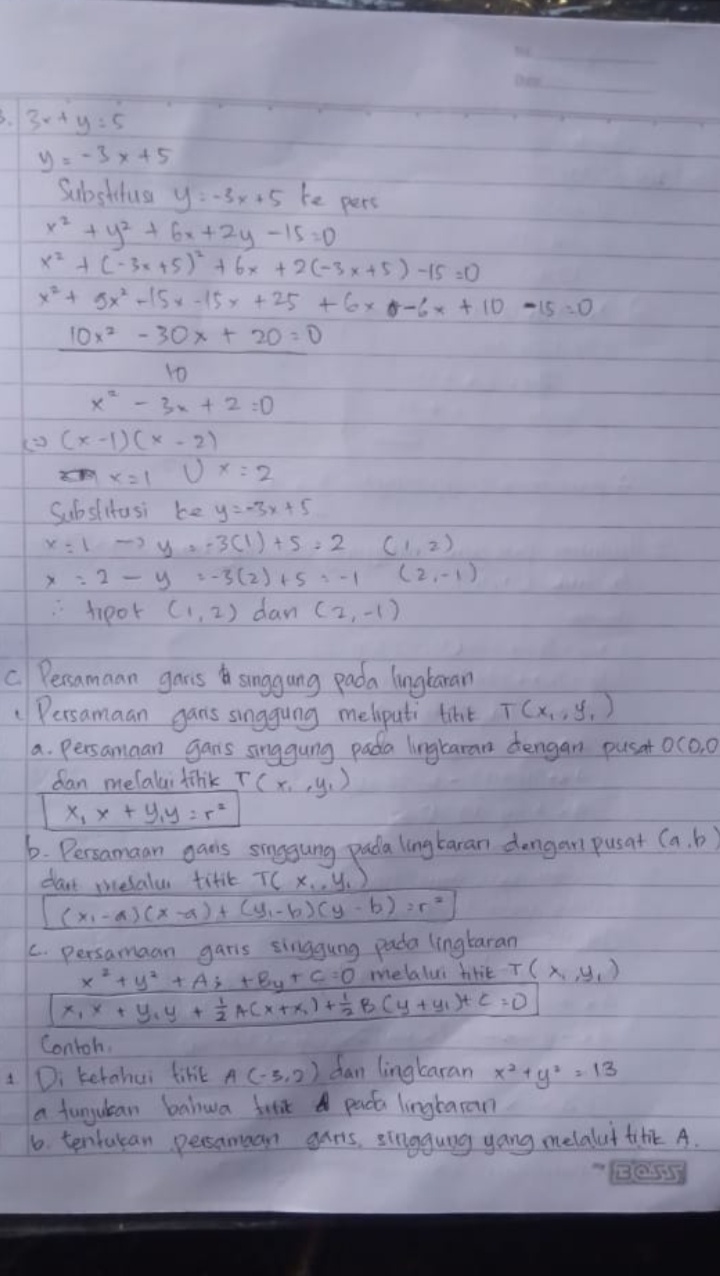 3. 3x + y = 5
y = -3x + 5
Substitusi y = -3x + 5 ke pers
x² + y² + 6x + 2y - 15 = 0
x² + (-3x + 5)² + 6x + 2(-3x + 5) - 15 = 0
x² + 9x² - 15x - 15x + 25 + 6x - 6x + 10 - 15 = 0
10x² - 30x + 20 = 0
10
x² - 3x + 2 = 0
<=> (x - 1)(x - 2)
x = 1 ∪ x = 2
Substitusi ke y = -3x + 5
x = 1 → y = -3(1) + 5 = 2 (1, 2)
x = 2 - y = -3(2) + 5 = -1 (2, -1)
∴ tipot (1, 2) dan (2, -1)
C. Persamaan garis singgung pada lingkaran
1. Persamaan garis singgung meliputi titik T(x₁, y₁)
a. Persamaan garis singgung pada lingkaran dengan pusat O(0,0
dan melalui titik T(x₁, y₁)
x₁x + y₁y = r²
b. Persamaan garis singgung pada lingkaran dengan pusat (a, b)
dan melalui titik T(x₁, y₁)
(x₁ - a)(x - a) + (y₁ - b)(y - b) = r²
c. persamaan garis singgung pada lingkaran
x² + y² + Ax + By + C = 0 melalui titik T(x₁, y₁)
x₁x + y₁y + ½A(x + x₁) + ½B(y + y₁) + C = 0
Contoh.
1 Di ketahui titik A (-3, 2) dan lingkaran x² + y² = 13
a tunjukan bahwa titik A pada lingkaran
b. tentukan persamaan garis, singgung yang melalui titik A.
BOSS